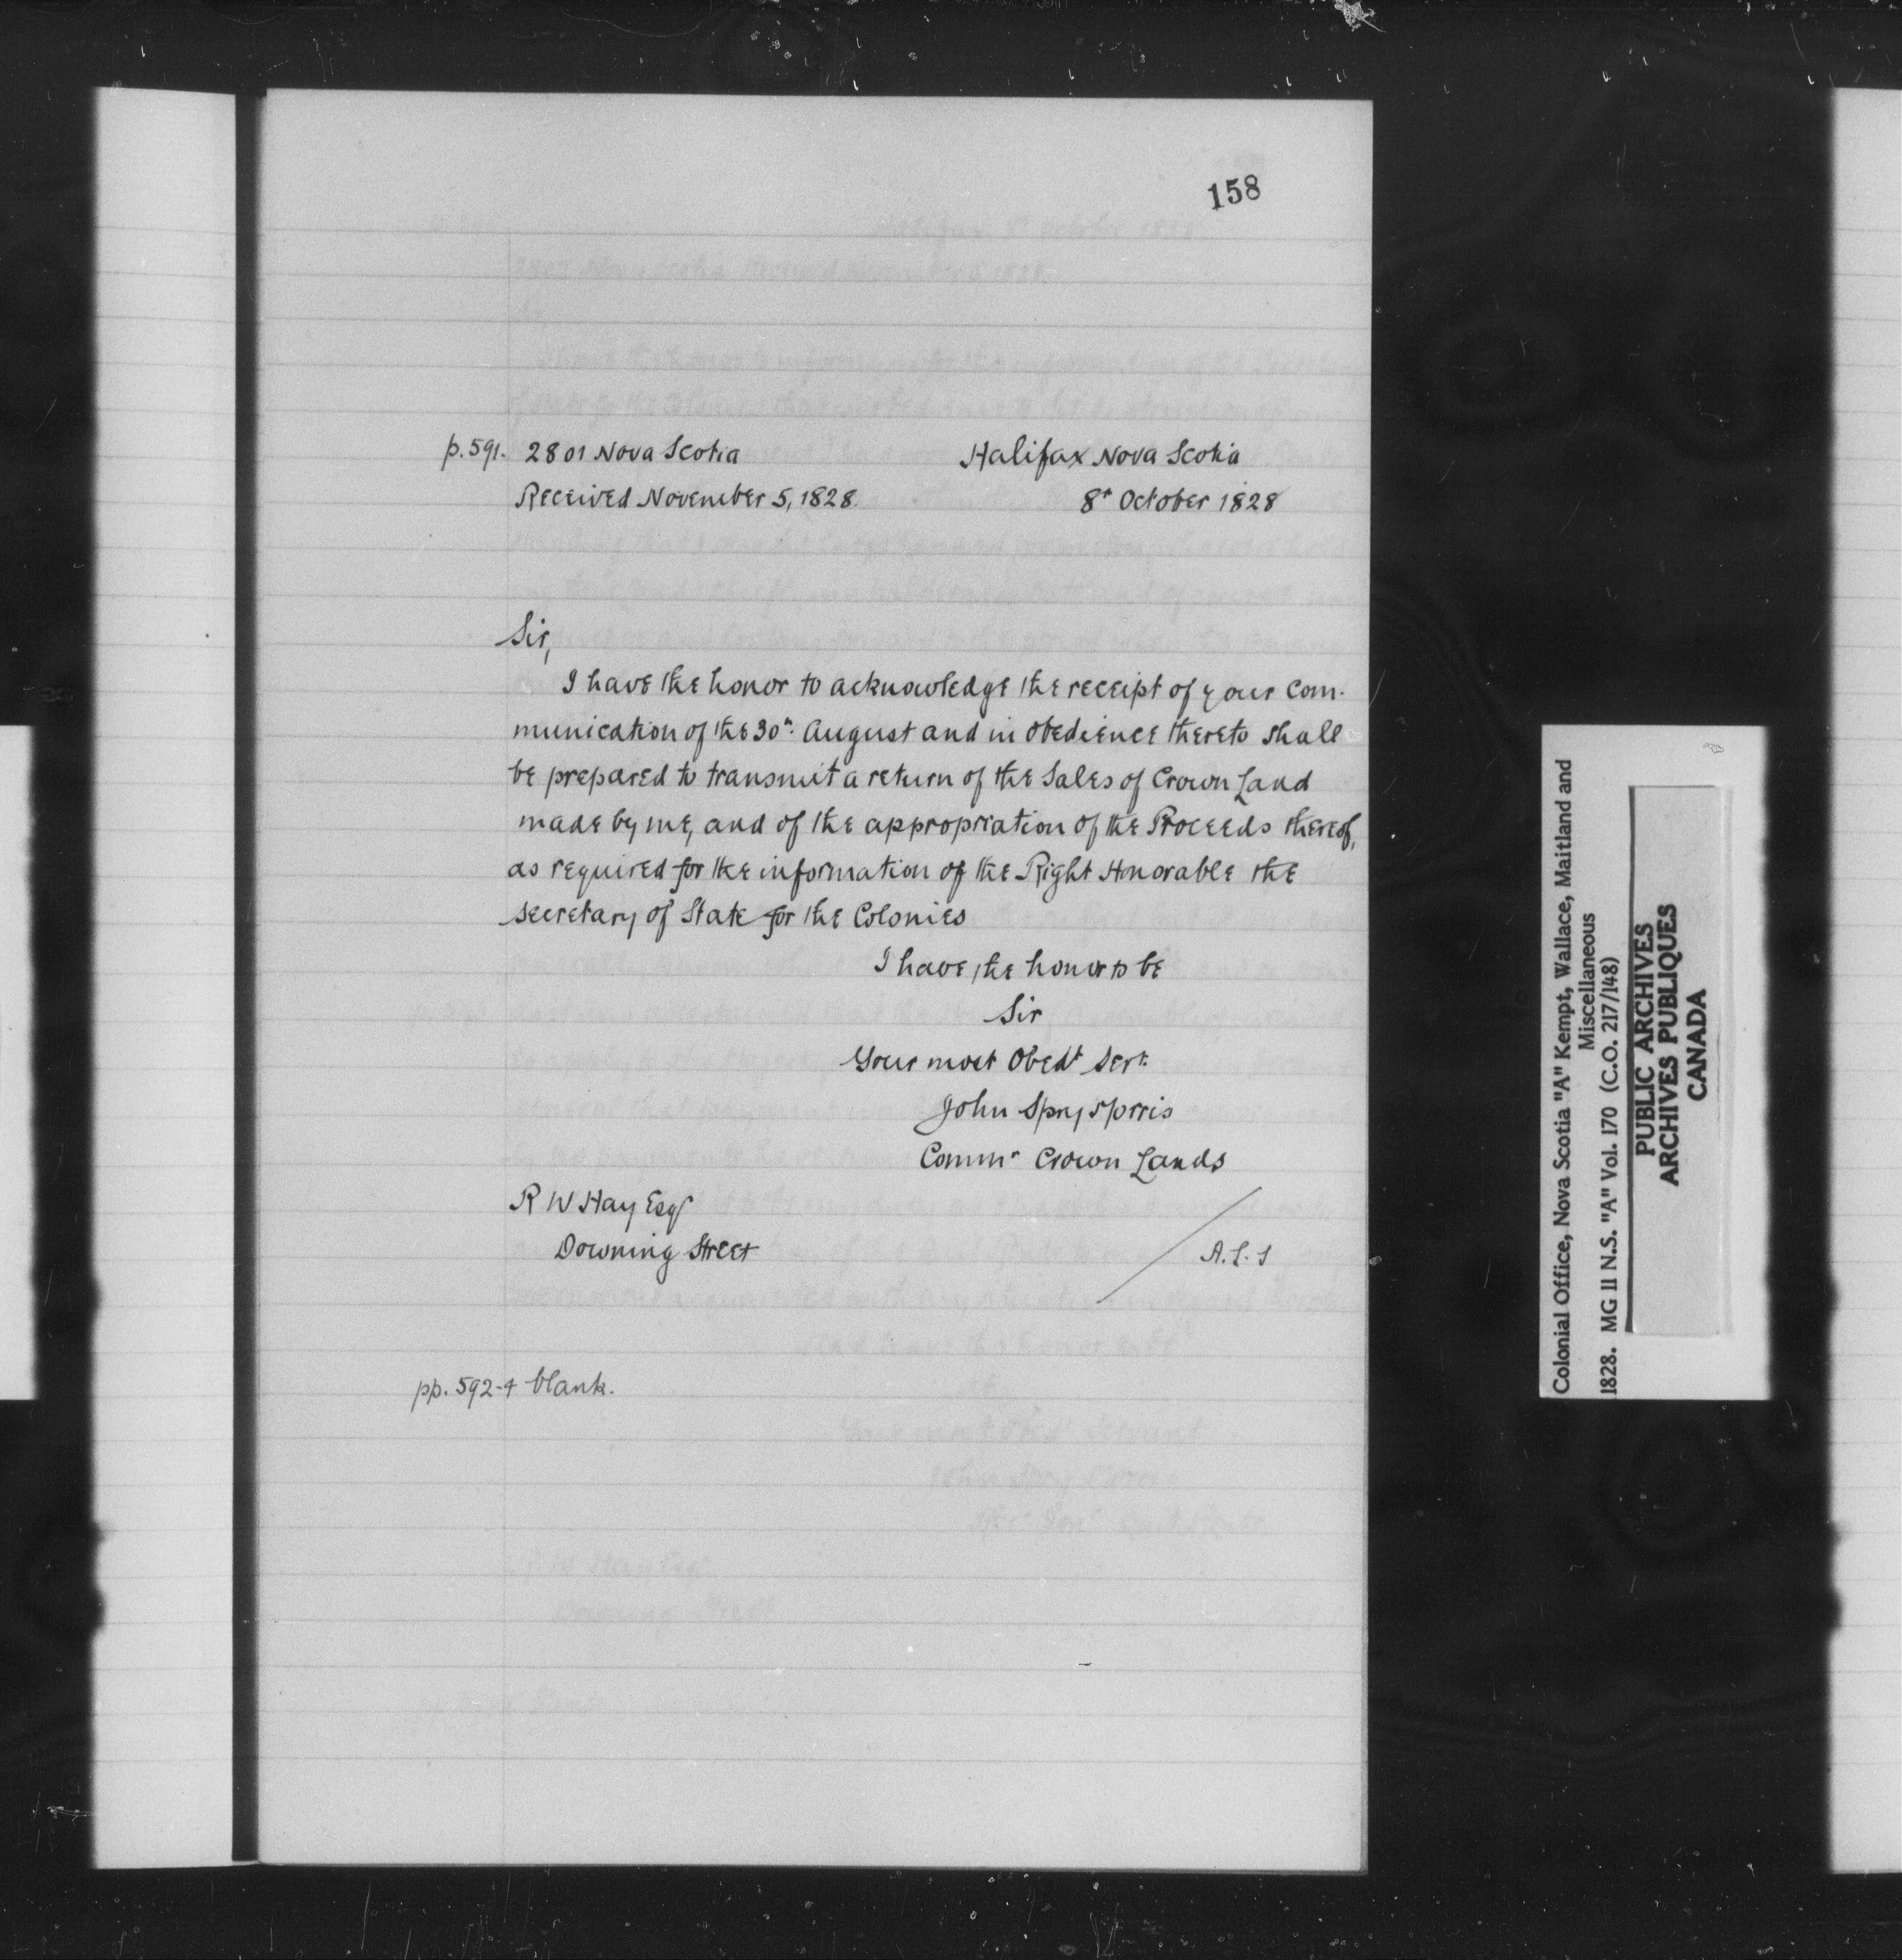 158
p.591. 2801 Nova Scotia Halifax Nova Scotia
Received November 5, 1828. 8th October 1828
Sir,
I have the honor to acknowledge the receipt of your Com-
munication of the 30th August and in obedience thereto shall
be prepared to transmit a return of the Sales of Crown Land
made by me, and of the appropriation of the Proceeds thereof,
as required for the information of the Right Honorable the
Secretary of State for the Colonies
I have the honor to be
Sir
Your most Obedt Sert.
John Spry Morris
Commr Crown Lands
R W Hay Esqr
Downing Street
A.L.S
pp. 592-4 blank.
Colonial Office, Nova Scotia "A" Kempt, Wallace, Maitland and
Miscellaneous
1828. MG 11 N.S. "A" Vol. 170 (C.O. 217/148)
PUBLIC ARCHIVES
ARCHIVES PUBLIQUES
CANADA